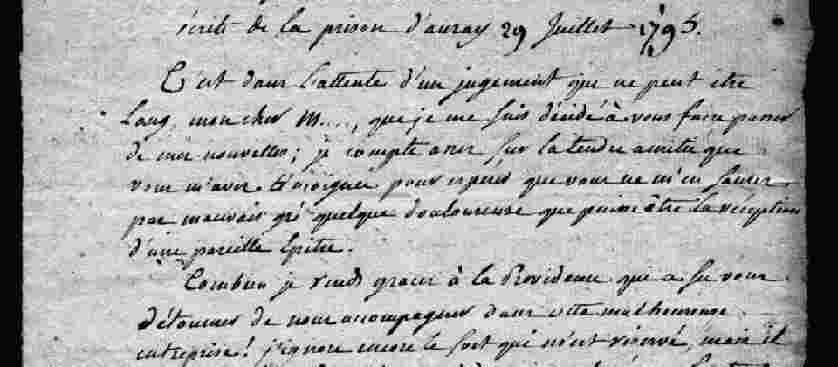 écrite de la prison d'auray 29 Juillet 1795.
C'est dans l'attente d'un jugement qui ne peut être
Long, mon cher M...., que je me suis décidé à vous faire passer
de mes nouvelles; je compte assez sur la tendre amitié que
vous m'avez témoignée pour espérer que vous ne m'en saurez
pas mauvais gré quelque douloureuse que puisse être la réception
d'une pareille Epitre.
Combien je rends graces à la Providence qui a su vous
détourner de nous accompagner dans cette malheureuse
entreprise! j'ignore encore le sort qui m'est réservé, mais il